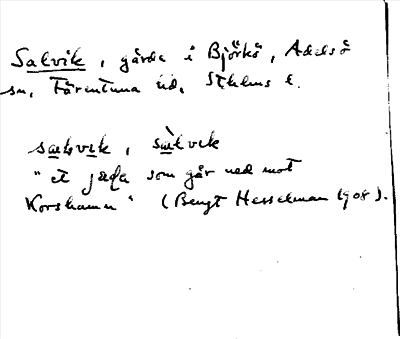 Salvik, gärde i Björkö, Adelsö
sn, Färentuna hd, Sthlms l.
sælvik, sælvik
"et
som går ned mot
Korshamn" (Bengt Hesselman 1908).